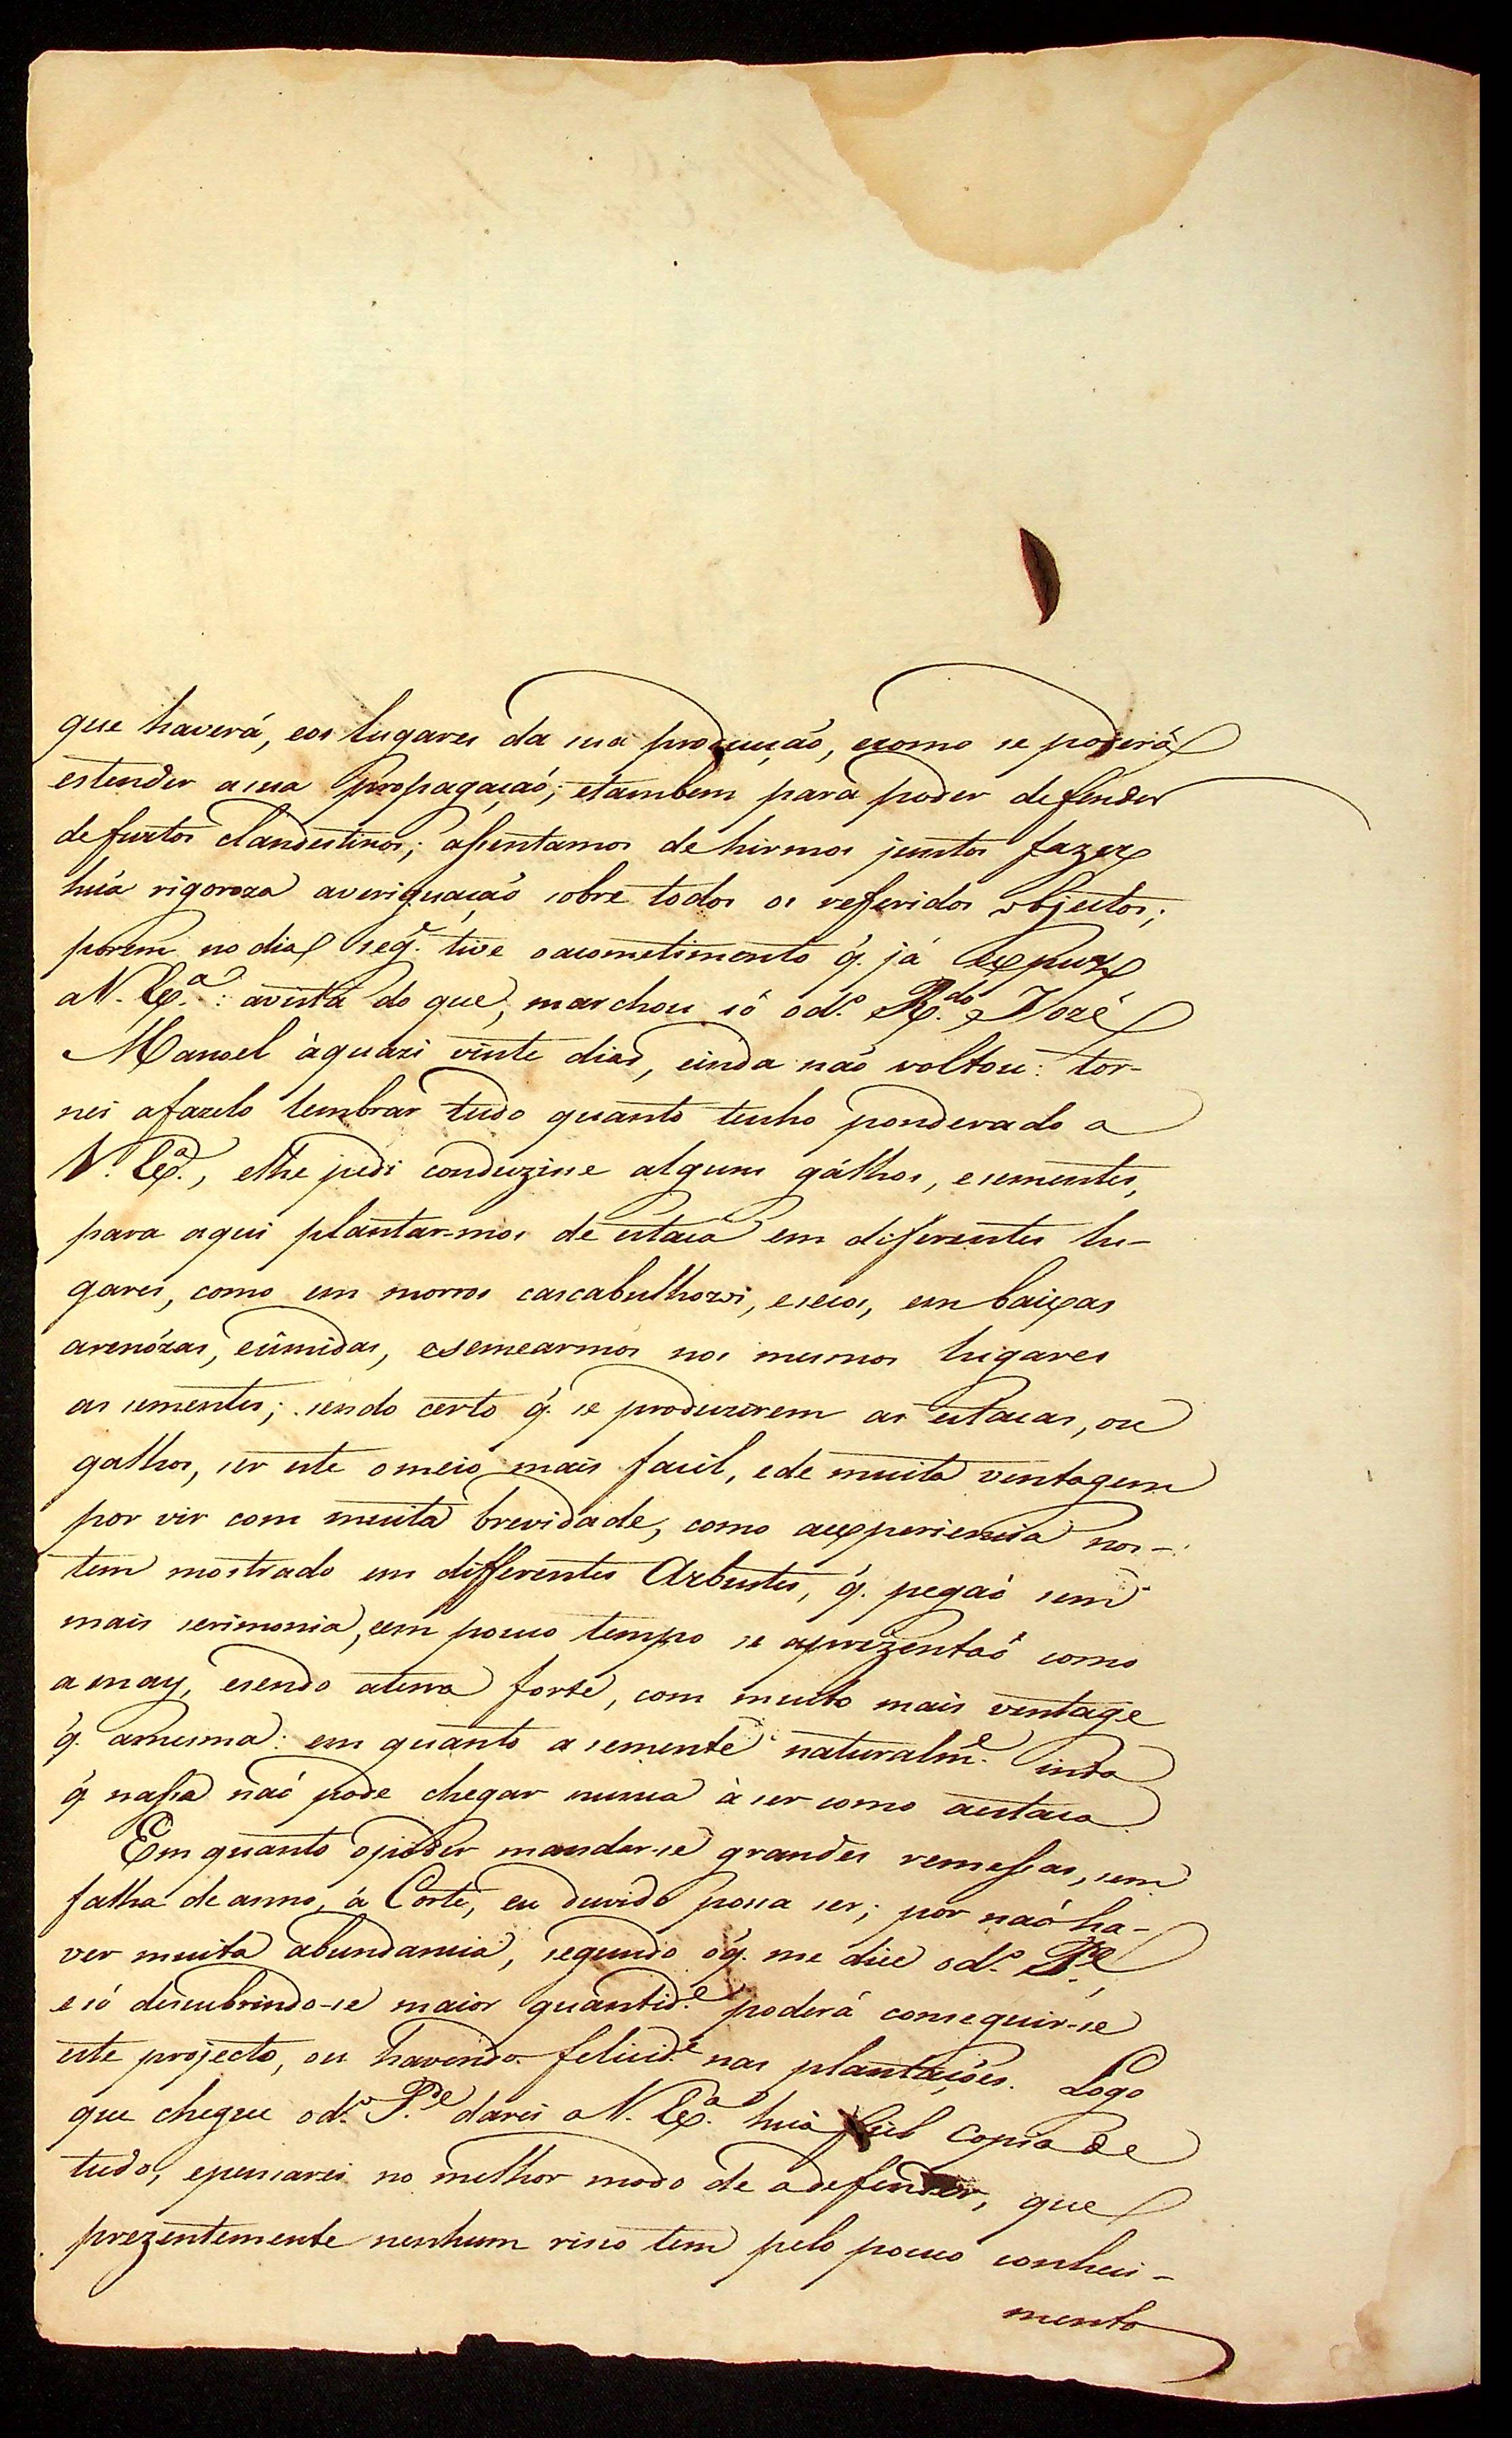 que haverá, eos lugares da sua producçaõ, ecomo se poderá
estender asua propagaçaõ; etambem para poder defender
defurtos clandestinos; assentamos dehirmos juntos fazer
huã rigoroza averiguaçaõ sobre todos os referidos objectos;
porem no dia seg.e tive oacometimento q̃. já expuz
aV. Ex.a: avista do que, marchou só od.o R.do Jozé
Manoel àquazi vinte dias, einda naõ voltou: tor-
nei afazelo lembrar tudo quanto tenho ponderado a
V. Ex.a, elhe pedi conduzisse alguns gálhos, esementes,
para aqui plantar-mos de estaca em diferentes lu-
gares, como em morros cascabulhozos, esecos, em baixas
arenózas, eûmidas, esemearmos nos mesmos lugares
as sementes; sendo certo q̃. se produzirem as estacas, ou
galhos, ser este omeio mais facil, ede muita ventagem
por vir com muita brevidade, como aexperiencia nos-
tem mostrado em differentes Arbustes, q̃. pegaõ sem
mais serimonia, eem pouco tempo se aprezentaõ como
a may, esendo aterra forte, com muito mais ventage
q̃. amesma: em quanto a semente naturalm.e inda
q̃ nassa naõ pode chegar nunca à ser como aestaca.
Em quanto opoder mandar-se grandes remessas, sem
falha de anno, à Corte, eu duvido possa ser; por naõ ha-
ver muita abundancia, segundo oq̃. me disse od.o P.e
e só descubrindo-se maior quantid.e poderá conseguir-se
este projecto, ou havendo felicid.e nas plantaçoẽs. Logo
que chegue od.o P.e darei a V. Ex.a huã fiel copia de
tudo, epensarei no melhor modo de adefender, que
prezentemente nenhum risco tem pelo pouco conheci-
mento